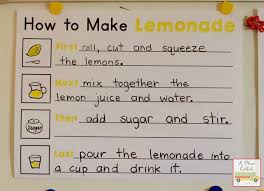 How to Make Lemonade
First roll, cut and squeeze
the lemons.
Next mix together the
lemon juice and water.
Sugar
Then add sugar and stir.
Last pour the lemonade into
a cup and drink it.
A Place Called